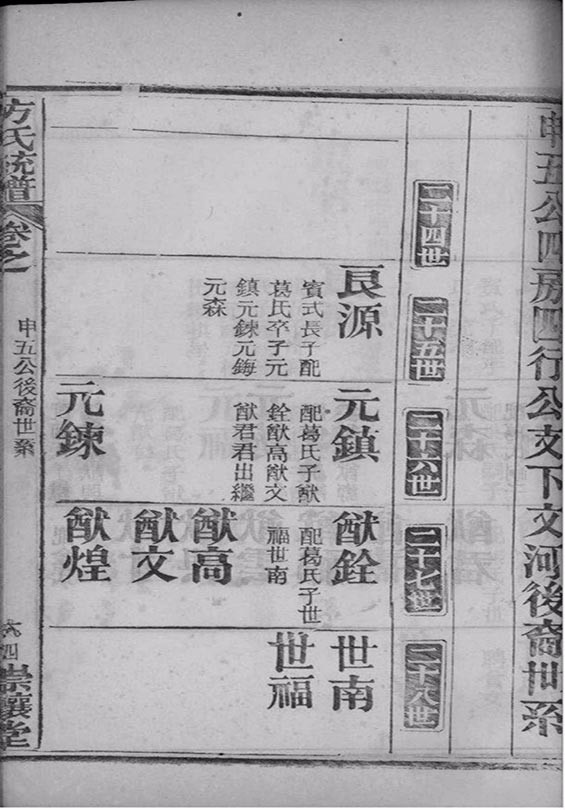 申五公四房四行公支下文河後裔世系
二十四世
二十五世
二十六世
二十七世
二十八世
良源
賓式長子配
葛氏卒子元
鎮元鍊元鋂
元森
元鎮
配葛氏子猷
銓猷高猷文
猷君君出繼
元鍊
猷銓
配葛氏子世
福世南
猷高
猷文
猷煌
世南
世福
方氏統譜
卷之
申五公後裔世系
六四
崇讓堂